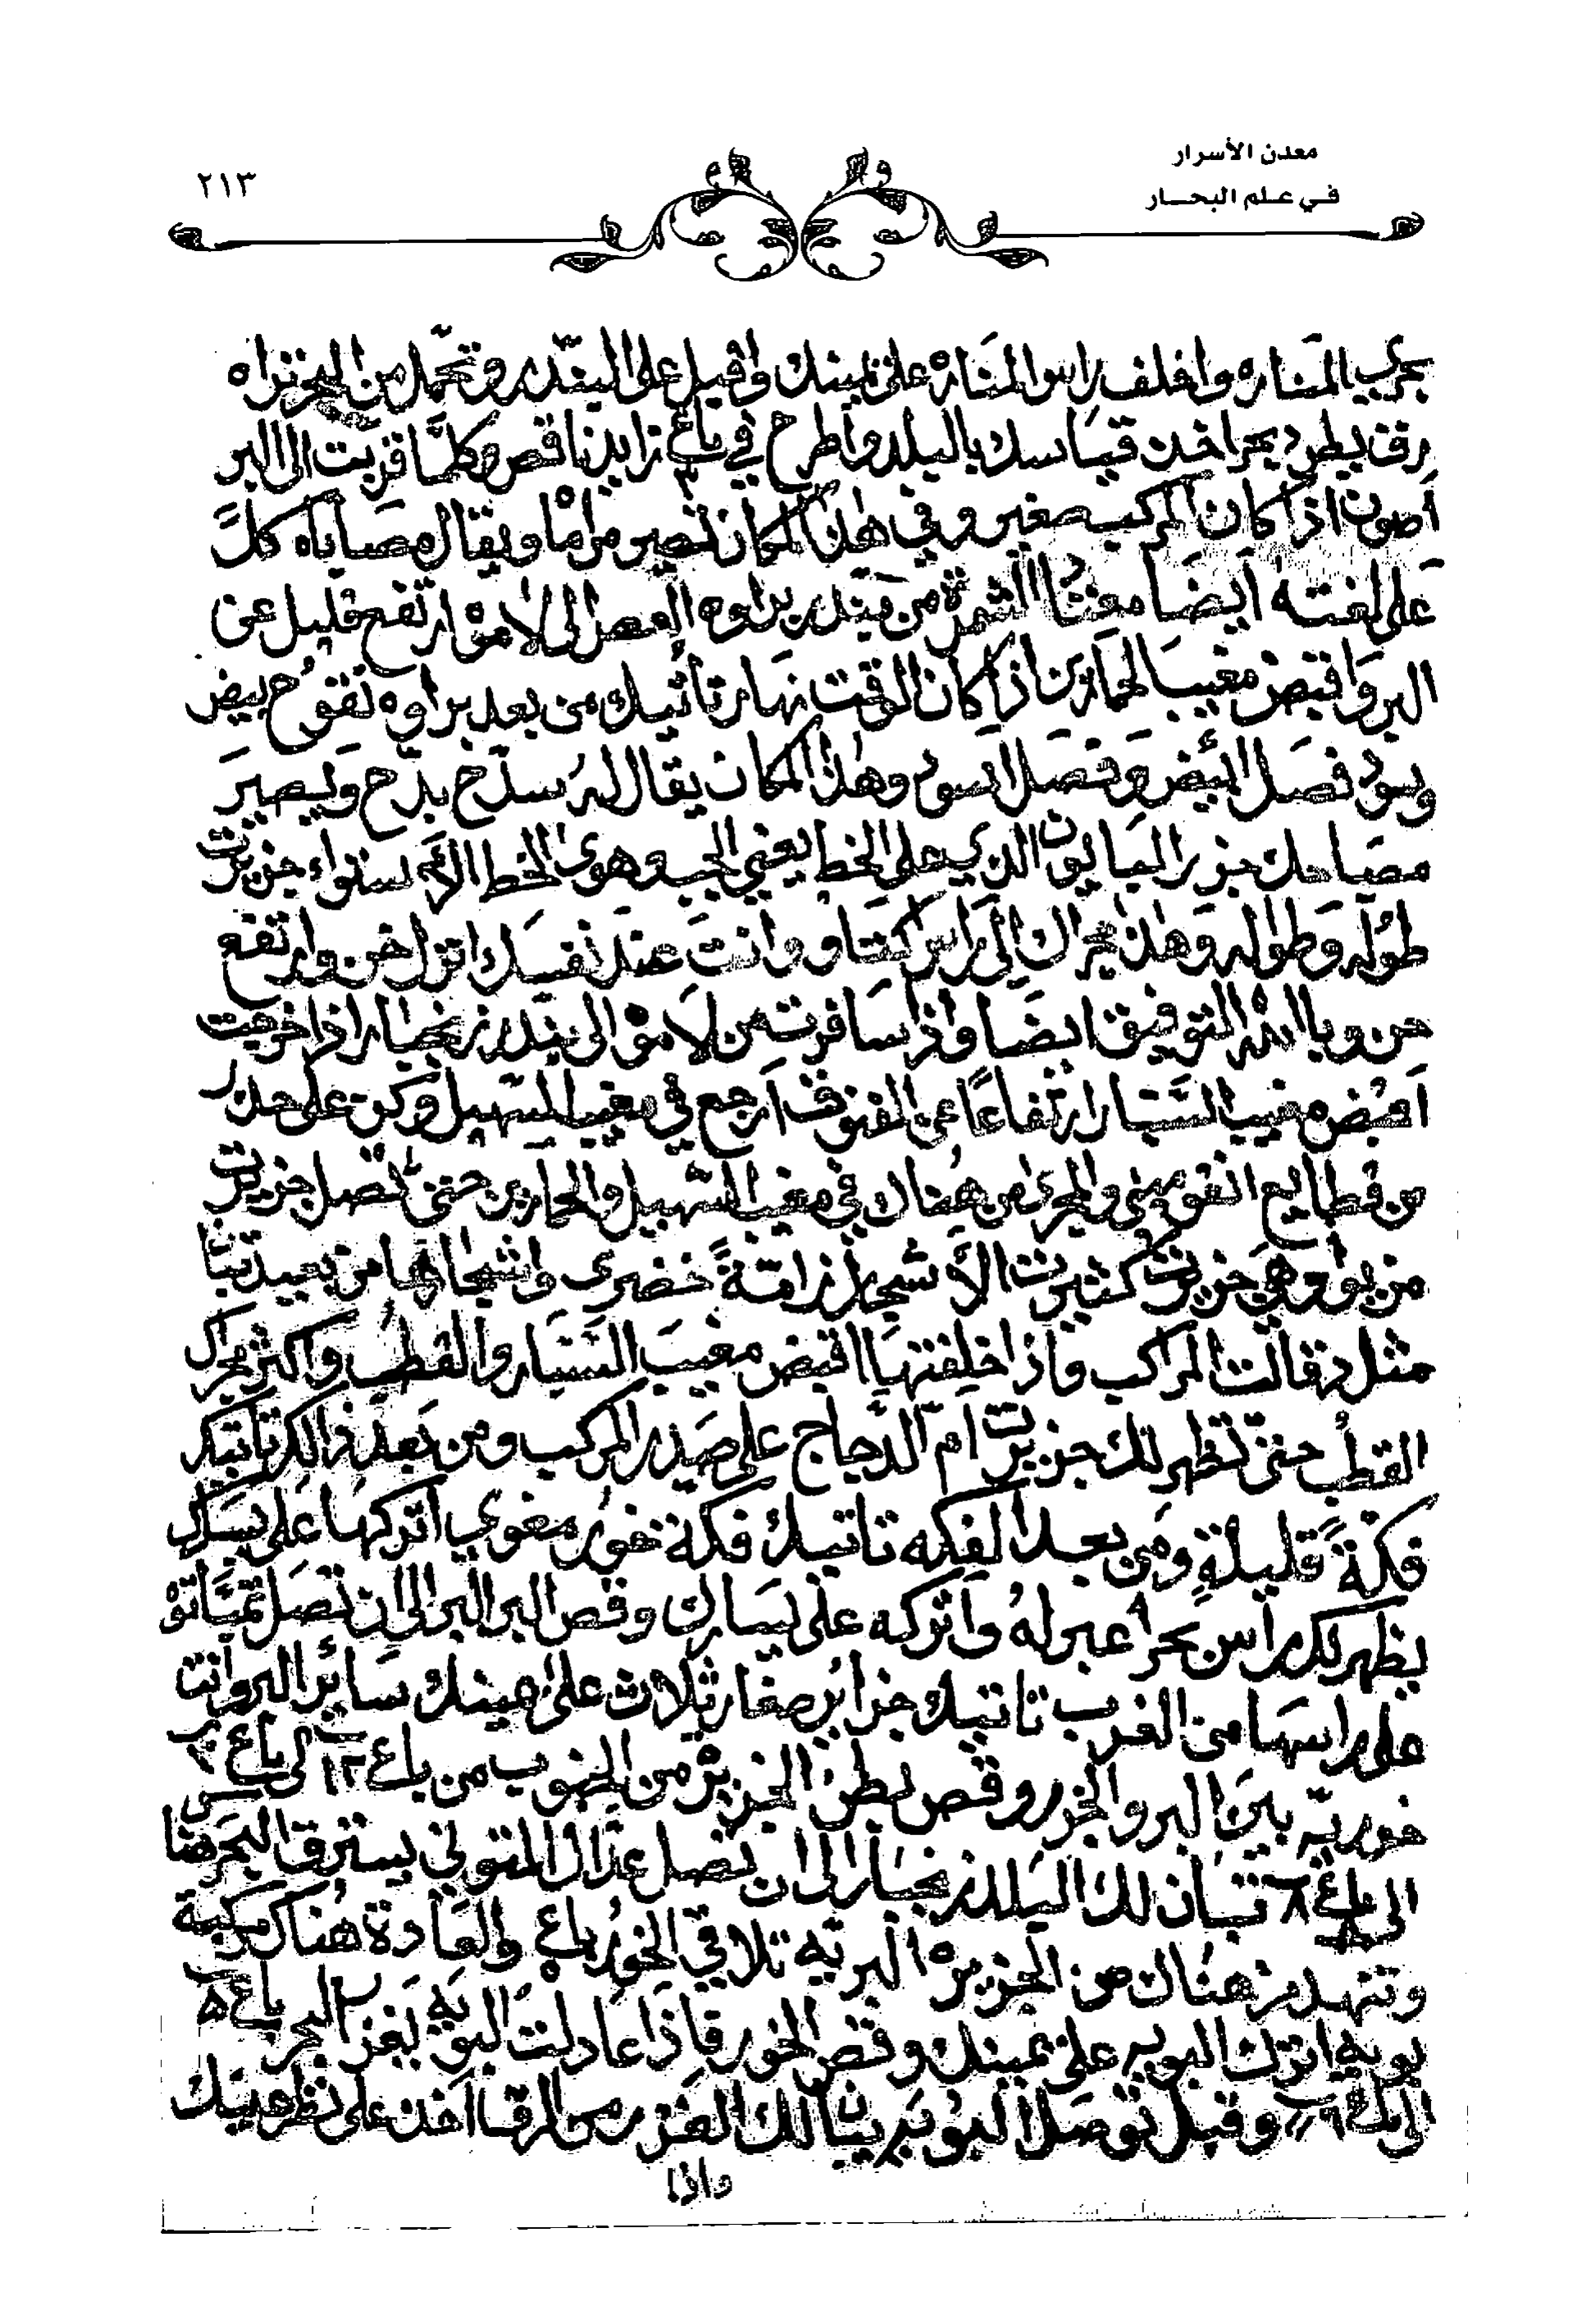 معدن الأسرار
في علم البحار
٢١٣
بحري المناره واخلف راس المناره على يمينك واقبل على البندر وتحمل من البحر تراه
رق يطرد بحرا خذ قياسك بالبلد واطرح في باع زايد ناقص وكلما قربت الى البر
أصون اذا كان المركب صغير وفي هذا المكان تصير مراما ويقال مصاباه كلً
على لغته أيضا معنا الشمرة من بندر براوه العصر الى لامو ارتفع قليل عن
البر واقبض مغيب الحمارين اذا كان الوقت نهار تأتيك من بعد براوه نقوح بيض
وسود فصل البيض وفصل السود وهذا المكان يقال له سدح بدح ويصير
مصاحك جزر البايون الذي على الخط يعني الجب وهوى الخط الاستواء جزيرت
طوله وطواله وهذا مجراك الى راس كتاو وانت عند نفسك انزل خن وارتفع
خن وبا الله التوفيق ايضا واذا سافرت من لامو الى بندر زنجبار اذا خرجت
اقبض مغيب الستار ارتفاعاً عن الفنوف ارجع في مغيب السهيل وكن على حذر
من قطايع انقوميني والمجرى من هناك في مغيب السهيل والحمارين حتى تصل جزيرت
منيوا وهي جزيرت كثيرت الأشجار زامةً خضرى واشجارها من بعيد تبنا
مثل دقالت المراكب فاذا خلفتها اقبض مغيب السنبار والقطب واكثر مجراك
القطب حتى تظهر لك جزيرت ام الدجاج على صدر المركب ومن بعد ذالك تاتيك
فكةً قليلةٍ ومن بعد الفكه تاتيك فكة خور مغوي اتركها على يسارك
يظهر لك راس بحرا عبر له واتركه على يسارك وقص البر البر الى ان تصل تمباتو
على راسها من الغرب تاتيك جزاير صغار ثلاث على يمينك سائر البر وانت
خوريه بين البر والجزر وقص بطن الجزيره من الجنوب من باع ١٢ الى باع
الى باع ٨ تبان لك البلد زنجبار الى ان تصل عدال المتوني يسترق البحر هنا
وتنهد من هناك من الجزيره البريه تلاقي الخور باع ٥ والعادة هناك مركبة
بويه اترك البويه على يمينك وقص الخور فاذا عادلت البويه يغزر البحر باع ٥
الى باع ٩ وقبل توصل البويه يبان لك الغزر من الرقا اخذ على نظر عينك
واذا